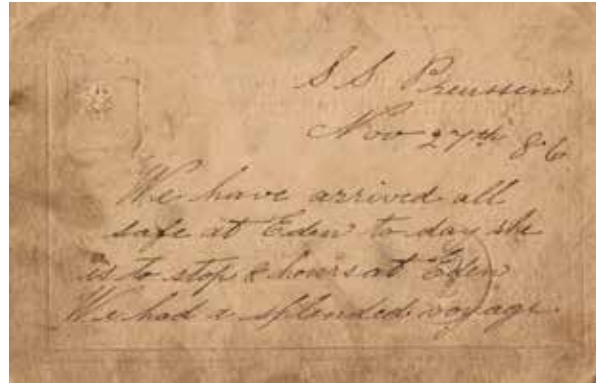 S S Preussen
Nov 27th 86
We have arrived all
safe at Eden to day she
is to stop 2 hours at Eden
We had a splended voyage.